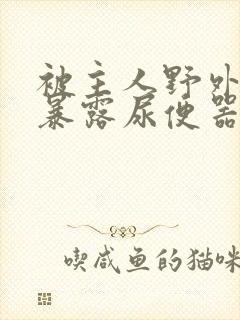 被主人野外
暴露尿便器
喫咸鱼的猫咪